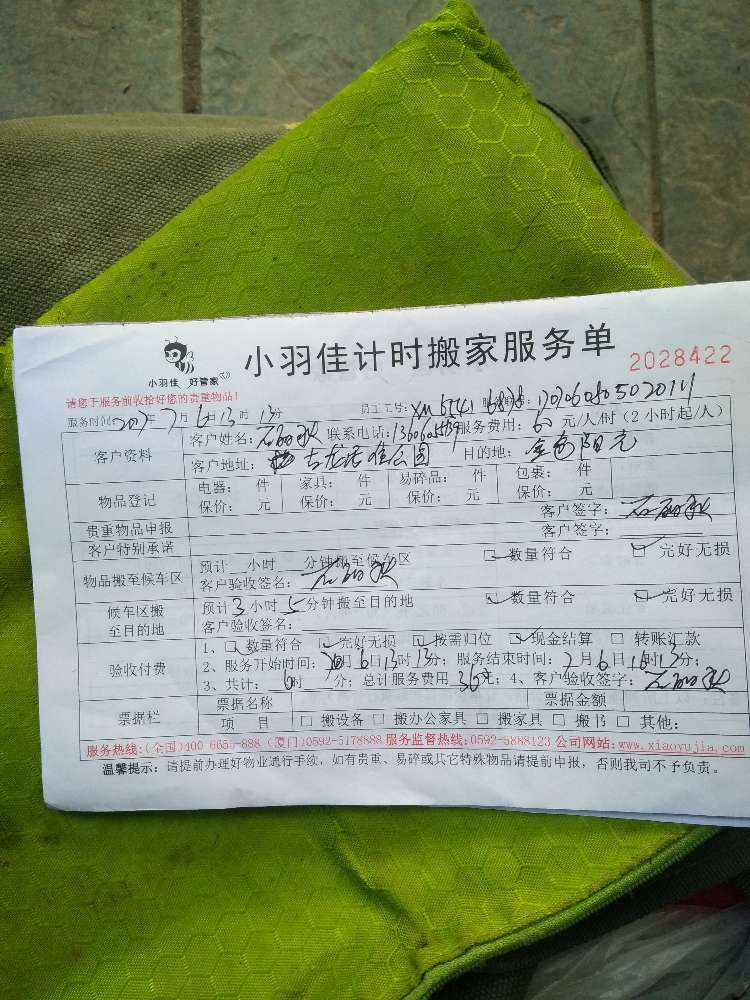 小羽佳 好管家
小羽佳计时搬家服务单
2028422
请您于服务前收拾好您的贵重物品!
服务时间: 2017年7月6日13时13分 员工工号:
客户资料 客户姓名: 联系电话: 服务费用: 60 元/人/时 (2小时起/人)
客户地址: 目的地: 金色阳光
物品登记 电器: 件 家具: 件 易碎品: 件 包裹: 件
保价: 元 保价: 元 保价: 元 保价: 元
贵重物品申报 客户签字:
客户特别承诺 客户签字:
物品搬至候车区 预计 小时 分钟搬至候车区 数量符合 完好无损
客户验收签名:
候车区搬至目的地 预计3小时5分钟搬至目的地 数量符合 完好无损
客户验收签名:
验收付费 1、 数量符合 完好无损 按需归位 现金结算 转账汇款
2、服务开始时间: 月6日13时13分; 服务结束时间: 7月6日16时13分;
3、共计: 6时 分; 总计服务费用 ; 4、客户验收签字:
票据栏 票据名称 票据金额
项目 搬设备 搬办公家具 搬家具 搬书 其他:
服务热线:(全国)400-6655-888 (厦门)0592-5178888 服务监督热线:0592-5888123 公司网站:www.xiaoyujia.com
温馨提示: 请提前办理好物业通行手续, 如有贵重、易碎或其它特殊物品请提前申报, 否则我司不予负责。